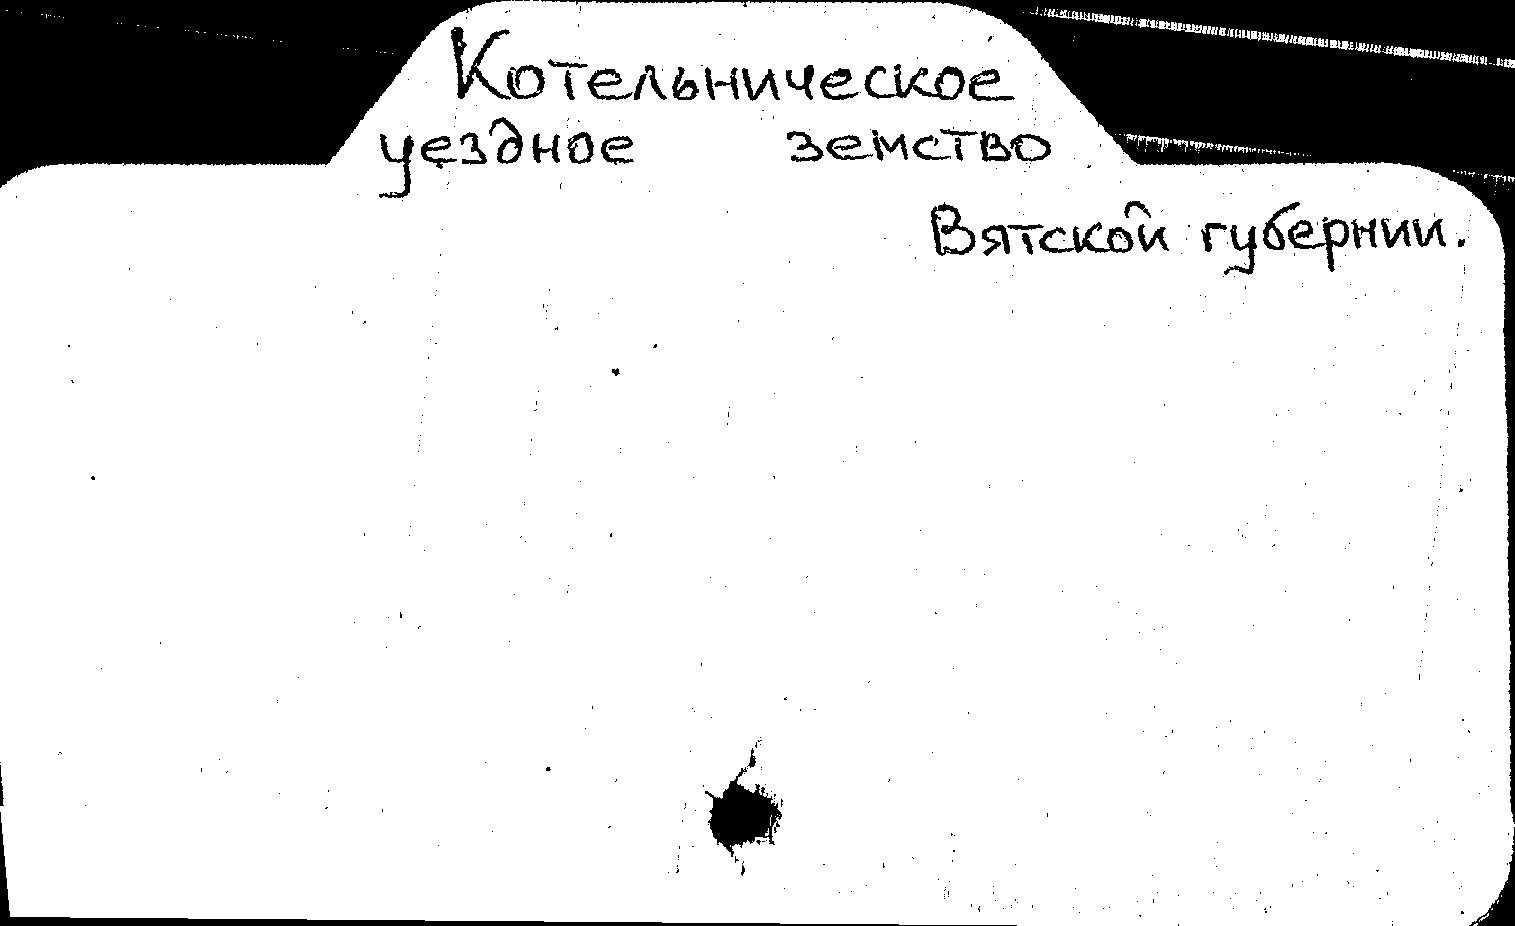 Котельническое
уездное земство
Вятской губернии.